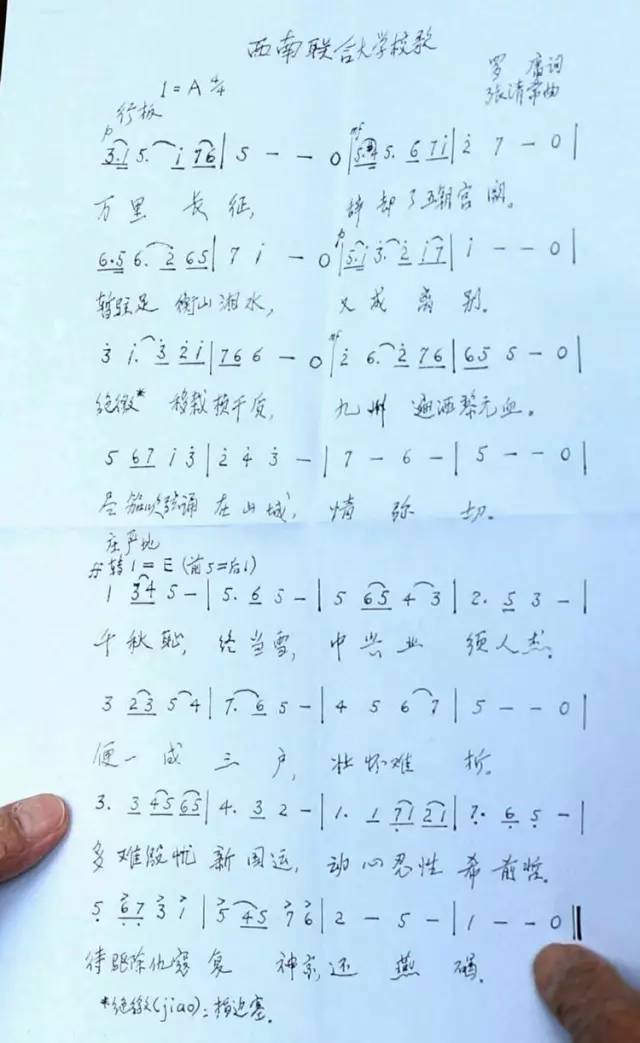 西南联合大学校歌
1=A 4/4
罗庸词
张清常曲
行板
p 3·1 5· 1 76 | 5 - - 0 | mf 5·4 5· 6 71 | 2 7 - 0 |
万里长征, 辞却了五朝宫阙。
6·5 6· 2 65 | 7 1 - 0 | p 5·1 3· 2 17 | 1 - - 0 |
暂驻足衡山湘水, 又成离别。
3 1· 3 21 | 766 - 0 | mf 2 6· 2 76 | 65 5 - 0 |
绝徼* 移栽桢干质, 九州遍洒黎元血。
5 67 1 3 | 2 4 3 - | 7 - 6 - | 5 - - 0 |
尽笳吹弦诵在山城, 情弥切。
庄严地
转1=E(前5=后1)
1 34 5 - | 5· 6 5 - | 5 65 4 3 | 2· 5 3 - |
千秋耻, 终当雪, 中兴业 须人杰。
3 23 5 4 | 7· 6 5 - | 4 5 6 7 | 5 - - 0 |
便一成三户, 壮怀难折。
3· 3 45 65 | 4· 3 2 - | 1· 1 71 21 | 7· 6 5 - |
多难殷忧新国运, 动心忍性希前哲。
5 67 3 1 | 5 45 7 6 | 2 - 5 - | 1 - - 0 ‖
待驱除仇寇复神京, 还燕碣。
*绝徼(jiao):指边塞。